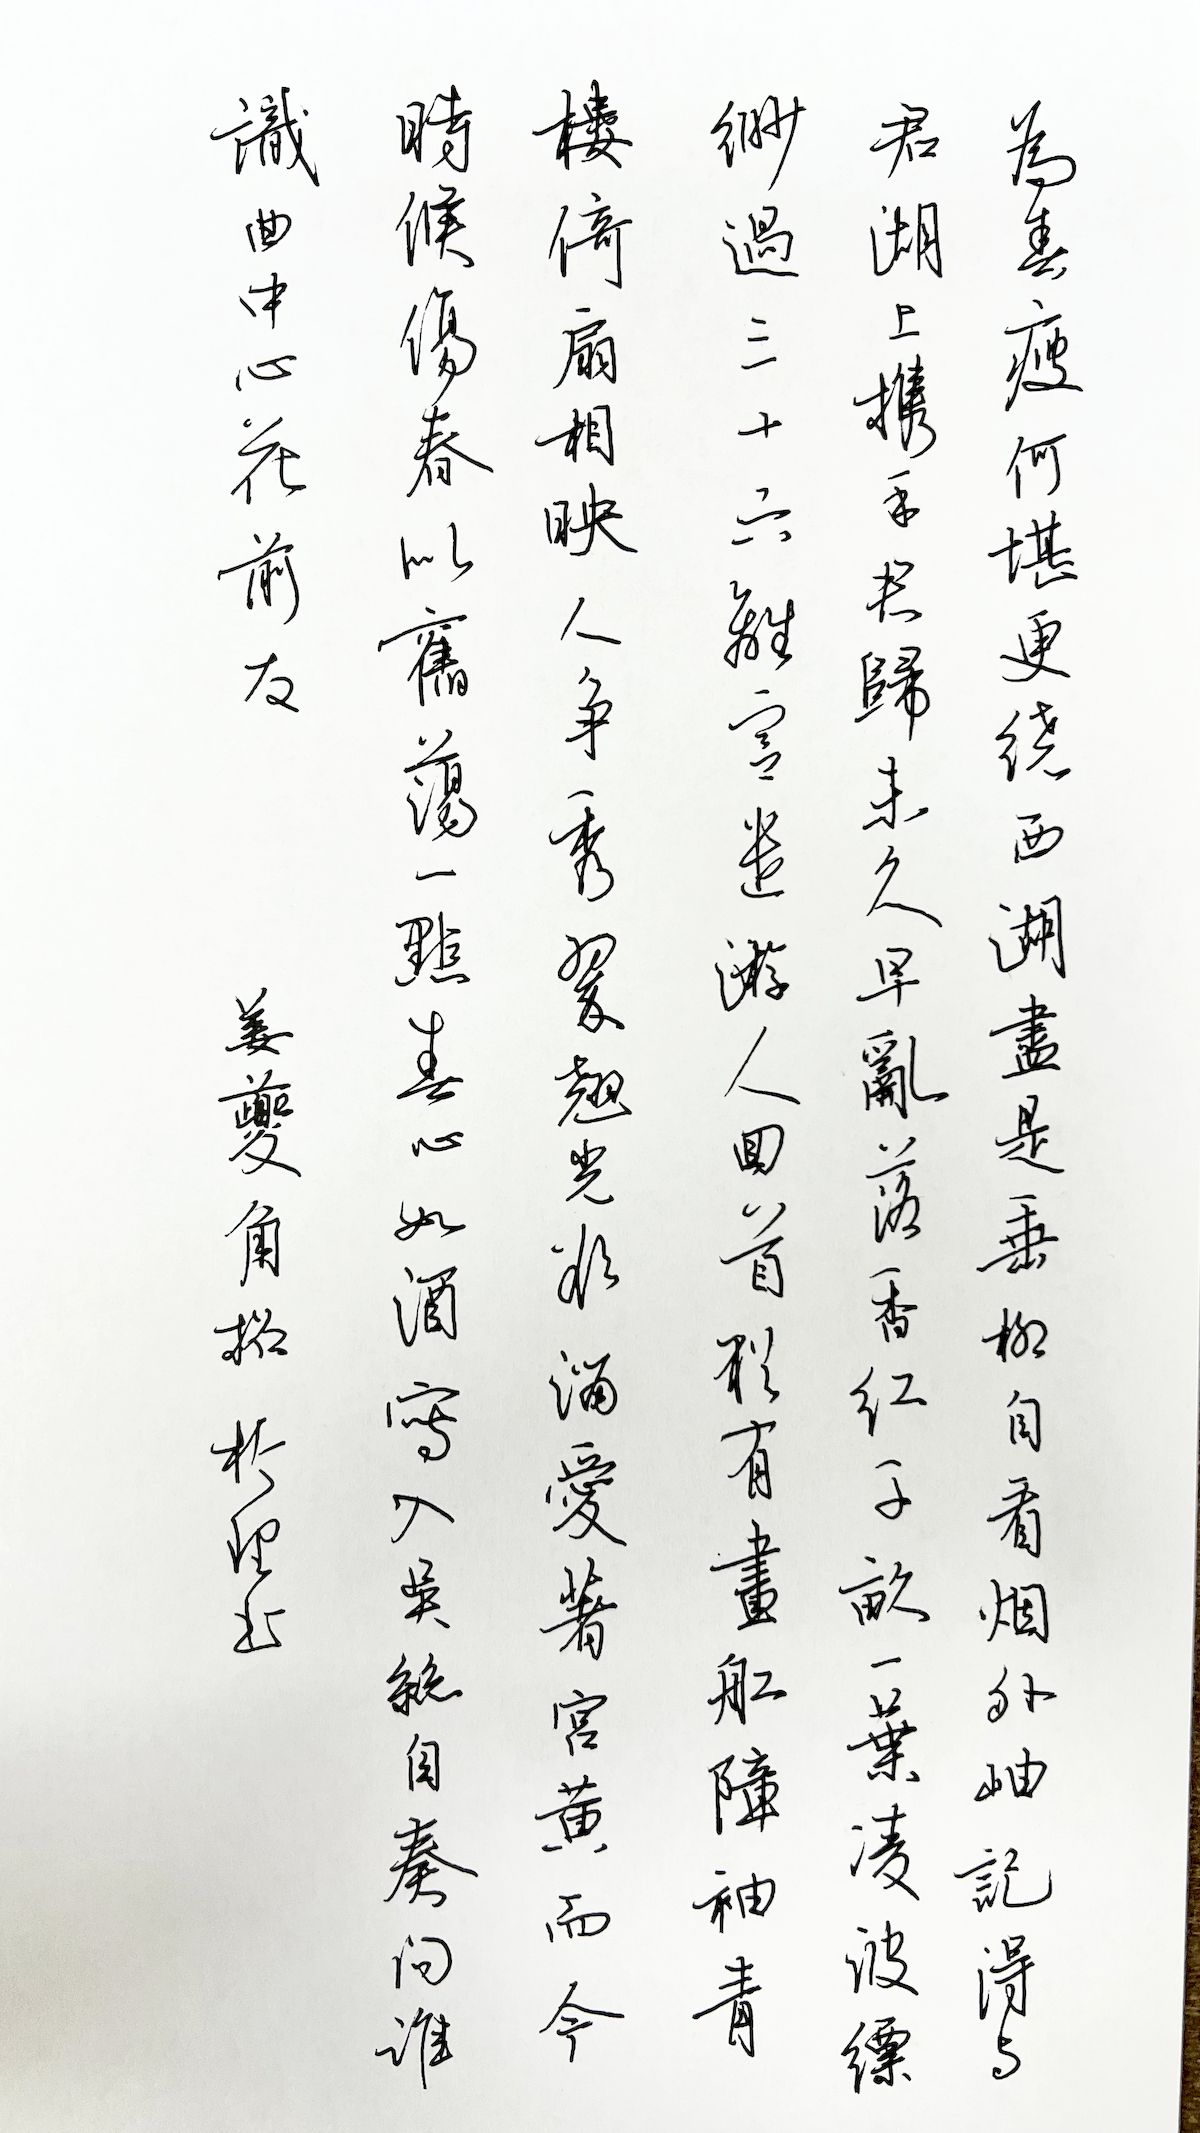 為春瘦何堪更绕西湖盡是垂柳自看烟外岫記得与
君湖上攜手君歸未久早亂落香红千畝一葉凌波縹
緲過三十六離宫遣游人回首猶有畫船障袖青
樓倚扇相映人争秀翠翹光欲溜愛著宫黄而今
時候傷春似舊蕩一點春心如酒寫入吳絲自奏问谁
識曲中心花前友
姜夔角招